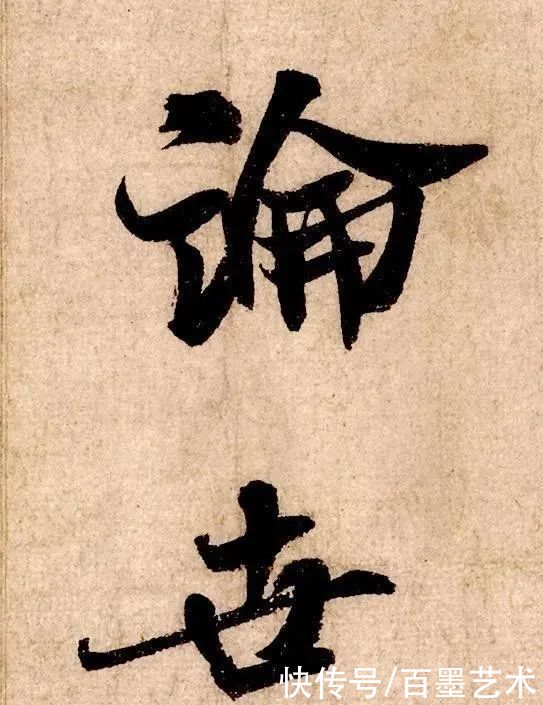 論
世
快传号/百墨艺术